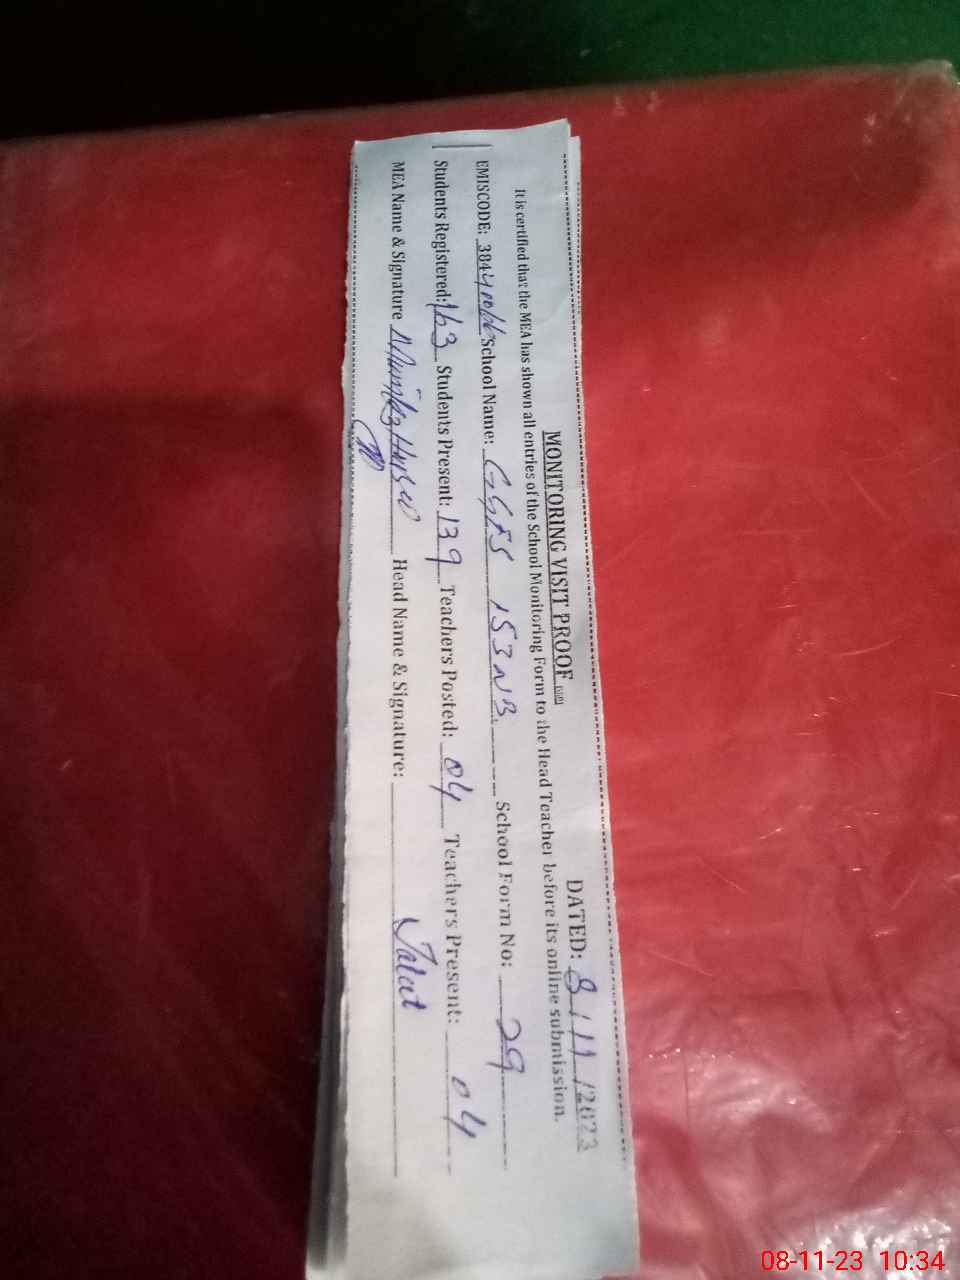 MONITORING VISIT PROOF
DATED: 8/11/2023
It is certified that the MEA has shown all entries of the School Monitoring Form to the Head Teacher before its online submission.
EMISCODE: 38440066 School Name: GGES 153NB School Form No: 29
Students Registered: 163 Students Present: 139 Teachers Posted: 04 Teachers Present: 04
MEA Name & Signature Head Name & Signature: Talat
08-11-23 10:34